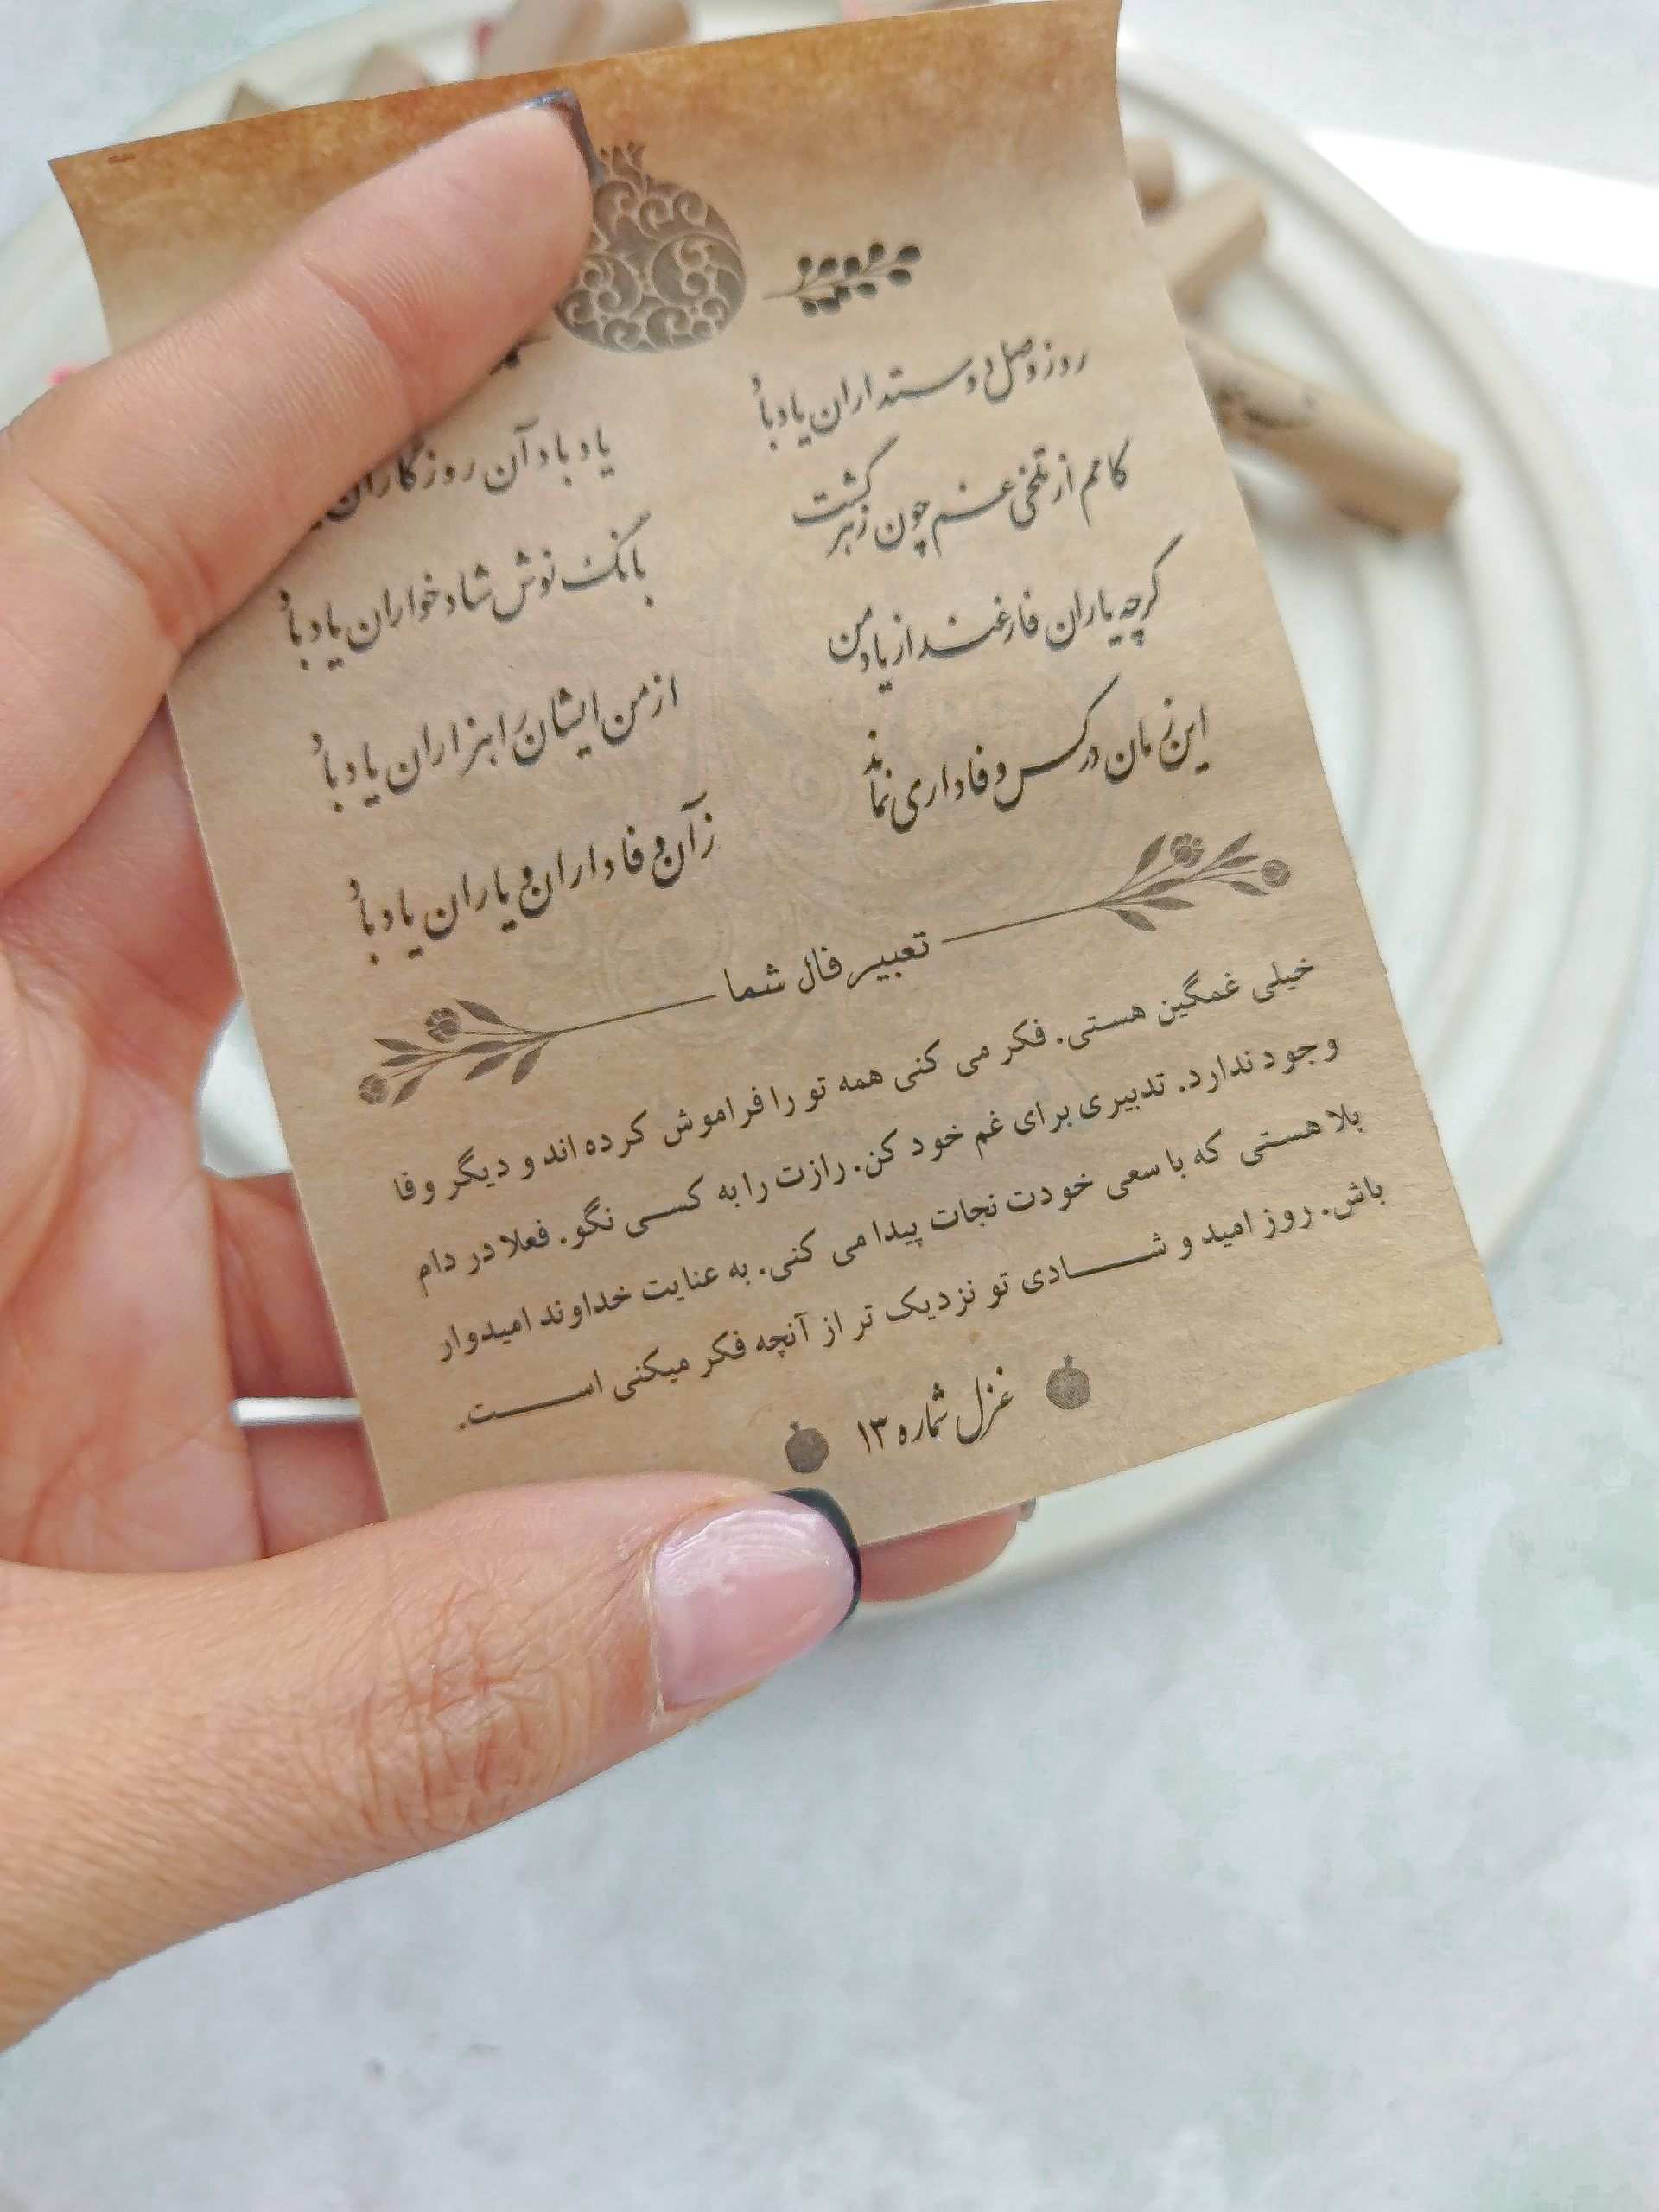 روز وصل دوستداران یاد باد
یاد باد آن روزگاران
کامم از تلخی غم چون زهر گشت
بانگ نوش شادخواران یاد باد
گرچه یاران فارغند از یاد من
از من ایشان را هزاران یاد باد
این زمان در کس وفاداری نماند
زآن وفاداران و یاران یاد باد
تعبیر فال شما
خیلی غمگین هستی. فکر می کنی همه تو را فراموش کرده اند و دیگر وفا
وجود ندارد. تدبیری برای غم خود کن. رازت را به کسی نگو. فعلا در دام
بلا هستی که با سعی خودت نجات پیدا می کنی. به عنایت خداوند امیدوار
باش. روز امید و شـــادی تو نزدیک تر از آنچه فکر میکنی اســـت.
غزل شماره ۱۳